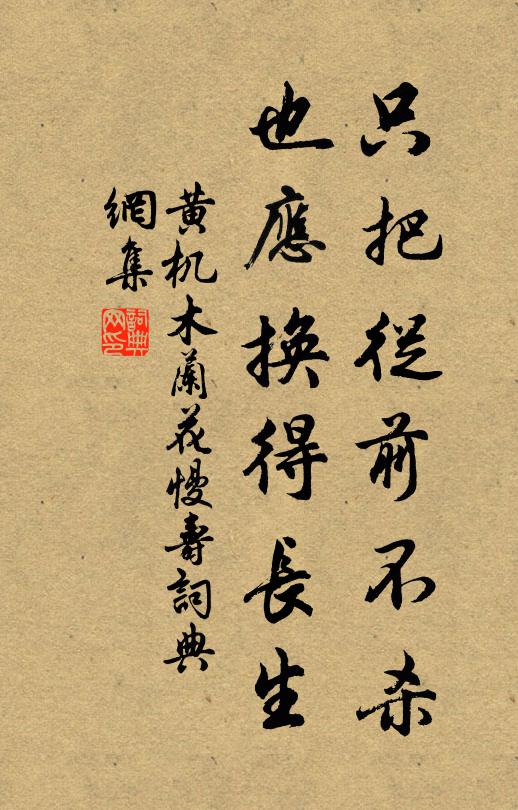 只把從前不杀
也應換得長生
黄机木蘭花慢壽詞典
網集
詞典
网印